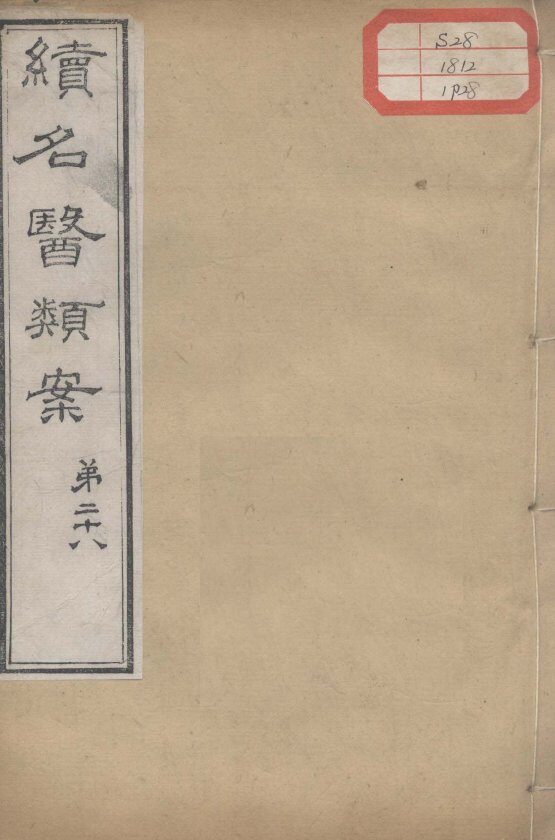 續名醫類案
弟二十八
S28
1812
1p28